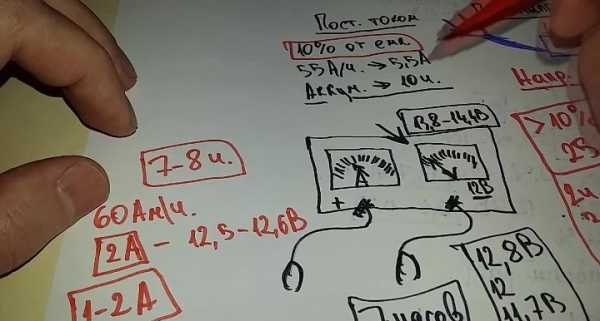 Пост. током
10% от емк.
55А/ч. → 5,5А
Аккум. → 10ч.
Напр.
13,8-14,4В
>10%
7-8 ч.
12В
+ -
60Ам/ч.
2А - 12,5-12,6В
1-2А
12,8В
12
11,7В
7 часов